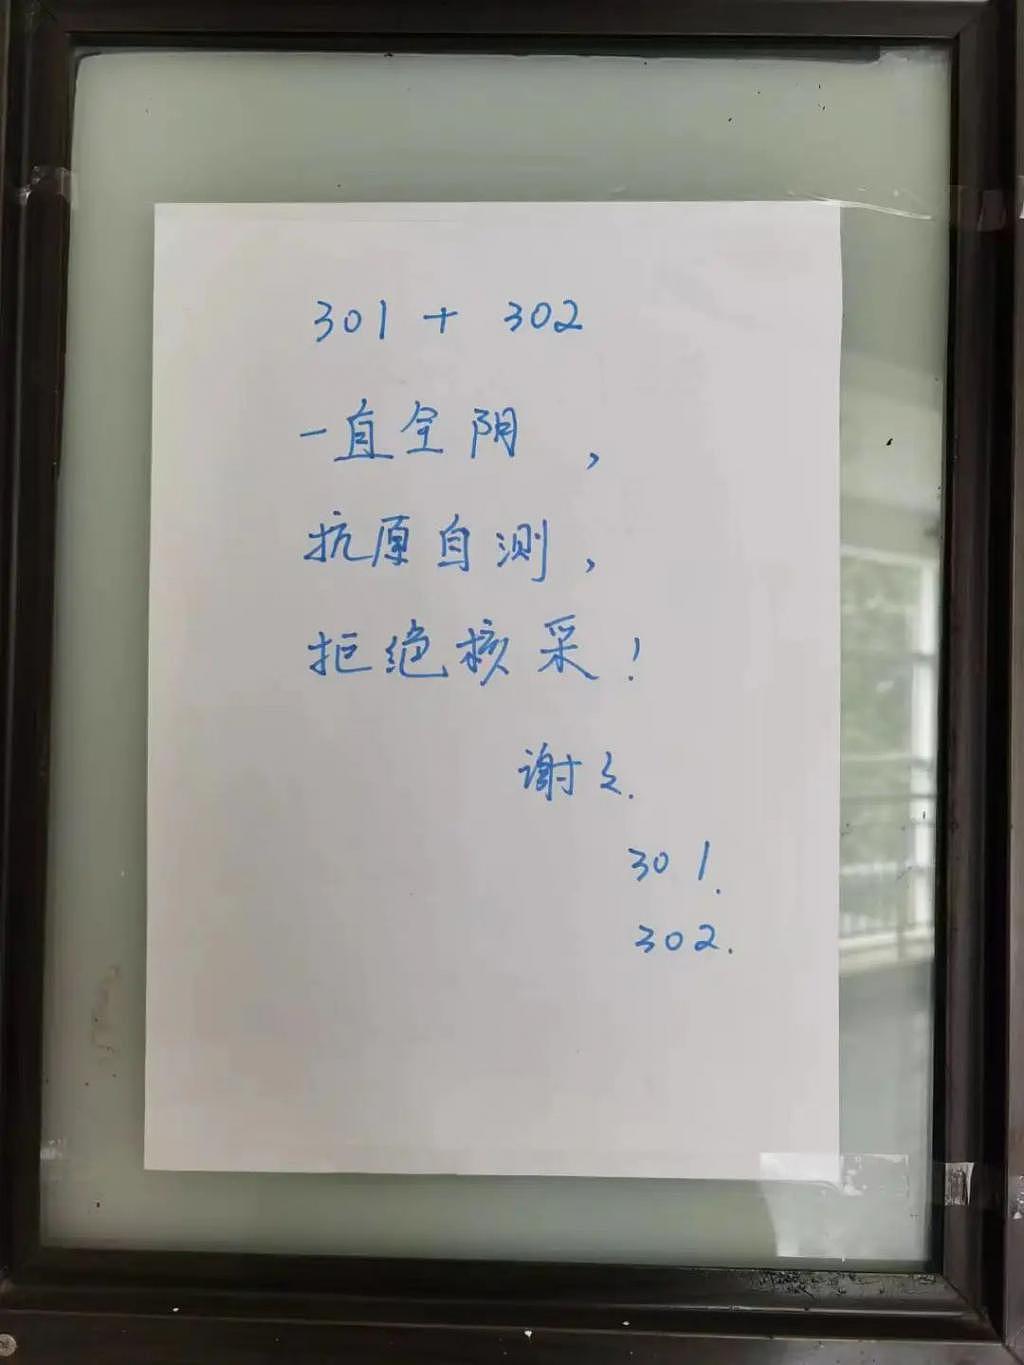 301 + 302
一直全阴，
抗原自测，
拒绝核采！
谢々.
301.
302.